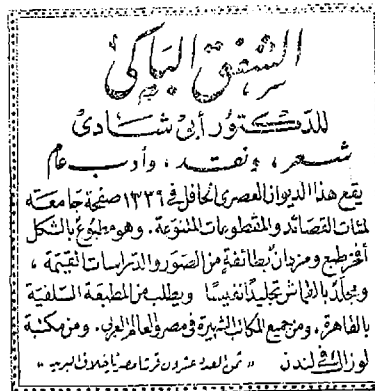 الشفق الباكي
للدكتور أبى شادى
شعر ، ونقد ، وأدب عام
يقع هذا الديوان العصرى الحافل فى ١٣٣٩ صفحة جامعة
لمئات القصائد والمقطوعات المتنوعة . وهو مطبوع بالشكل
أفخر طبع ومزدان بطائفة من الصور والدراسات القيمة ،
ومجلد بالقماش تجليدا نفيسا ويطلب من المطبعة السلفية
بالقاهرة ، ومن جميع المكاتب الشهيرة فى مصر والعالم العربى . ومن مكتبة
لوزاك فى لندن « ثمن العدد عشرون قرشا مصريا خلاف البريد »